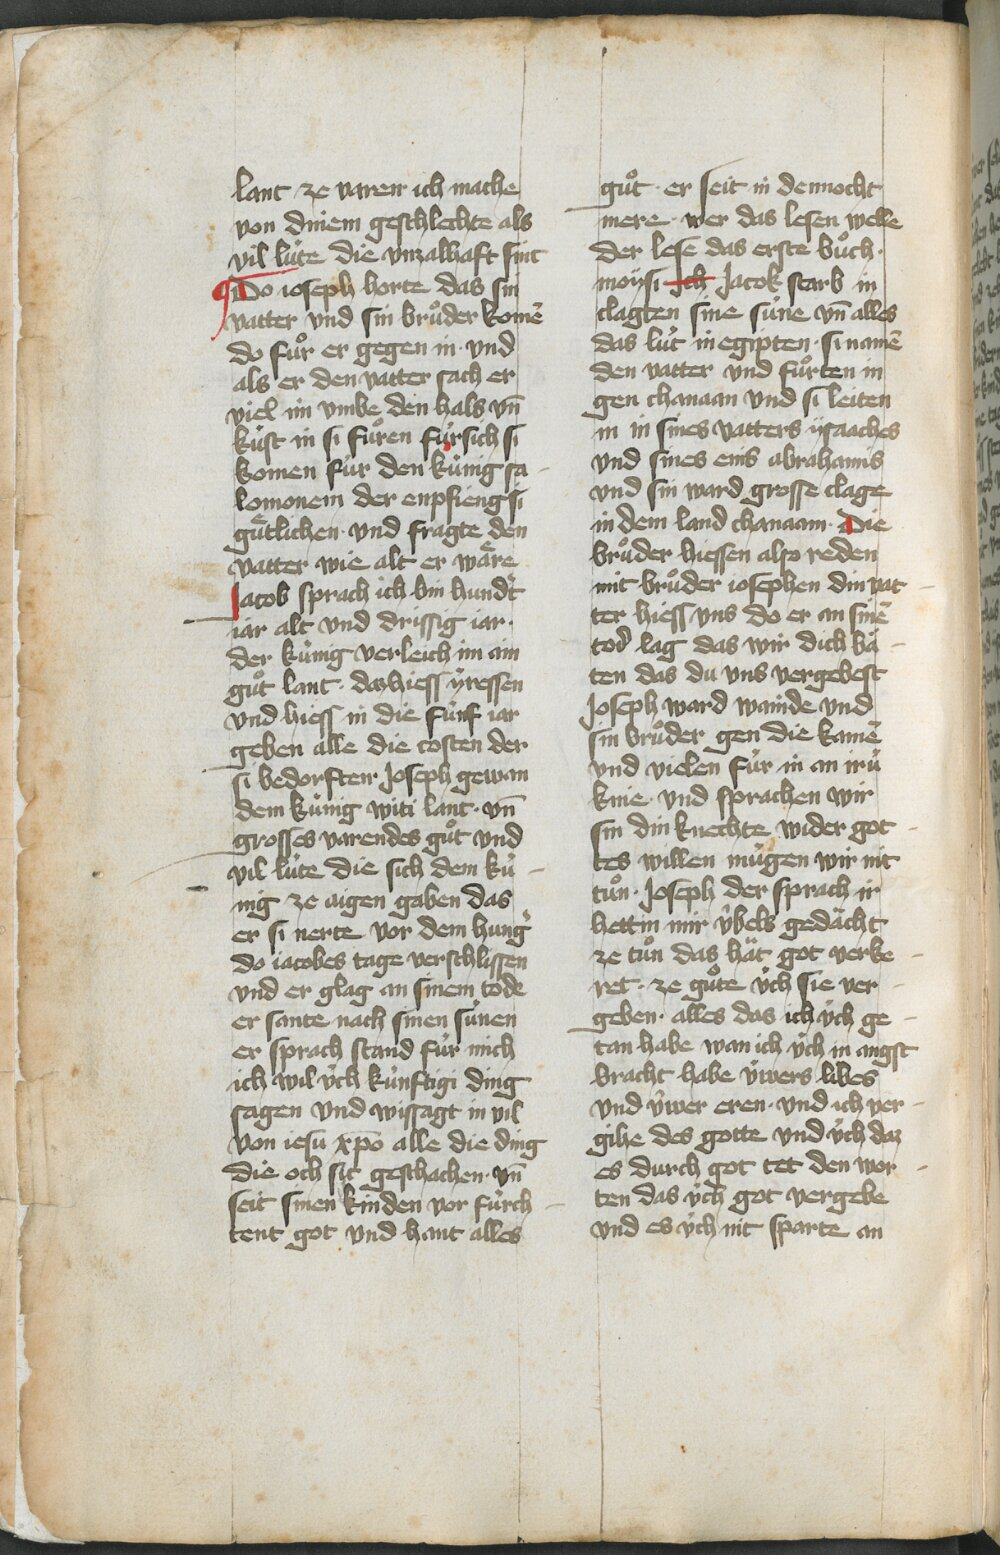 lant ze varen ich mache
von dinem geschlechte als
vil lu̍te die vnzalhaft sint
Do ioseph horte das sin
vatter vnd sin bru̍der komē
do fuͦr er gegen in · vnd
als er den vatter sach er
viel im vmbe den hals vn̄
kust in si fuͦren fu̍r sich si
komen fu̍r den ku̍nig sa
lomonem der enpfieng si
guͤtlichen · vnd fragte den
vatter wie alt er wäre
Jacob sprach ich bin hundt̛
iar alt vnd drissig iar ·
der ku̍nig verleich im ain
guͦt lant · daz hiess yressen
vnd hiess in die fu̍nf iar
geben alle die costen der
si bedorften Joseph gewan
dem ku̍nig witi lant · vn̄
grosses varendes guͦt vnd
vil lu̍te die sich dem ku̍
nig ze aigen gaben das
er si nerte vor dem hung̛
do iacobes tage verschlissen
vnd er glag an sinem tode
er sante nach sinen su̍nen
er sprach stand fu̍r mich
ich wil v̍ch ku̍nftigi ding
sagen vnd wissagt in vil
von iesu xp̄o alle die ding
die och sit geschachen · vn̄
seit sinen kinden vor fu̍rch
tent got vnd hant alles
guͦt · er seit in dennocht
mere · wer das lesen welle
der lese das erste buͦch ·
moÿsi ich Jacok starb in
clagten sine su̍ne vn̄ alles
das lu̍t in egipten · si namē
den vatter vnd fuͦrten in
gen chanaan vnd si leiten
in in sines vatters ysaaches
vnd sines enis abrahamis
vnd sin ward grosse clage
in dem land chanaam · Die
bruͦder hiessen also reden
mit bruͦder iosephen din vat
ter hiess vns do er an sinē
tod lag das wir dich bä
ten das du vns vergebest
Joseph ward wainde vnd
sin bruͦder gen die kamē
vnd vielen fu̍r in an iru̍
knie · vnd sprachen wir
sin din knechte wider got
tes willen mu̍gen wir nit
tuͦn · Joseph der sprach ir
hettin mir v̍bels gedächt
ze tuͦn das hät got verke
ret · ze guͦte v̍ch sie ver
geben · alles das ich v̍ch ge
tan habe wan ich v̍ch in angst
bracht habe v̍wers libes
vnd v̍wer eren · vnd ich ver
gihe des gotte vnd v̍ch daz
es durch got tet den wor
ten das v̍ch got vergebe
vnd es v̍ch nit sparte an